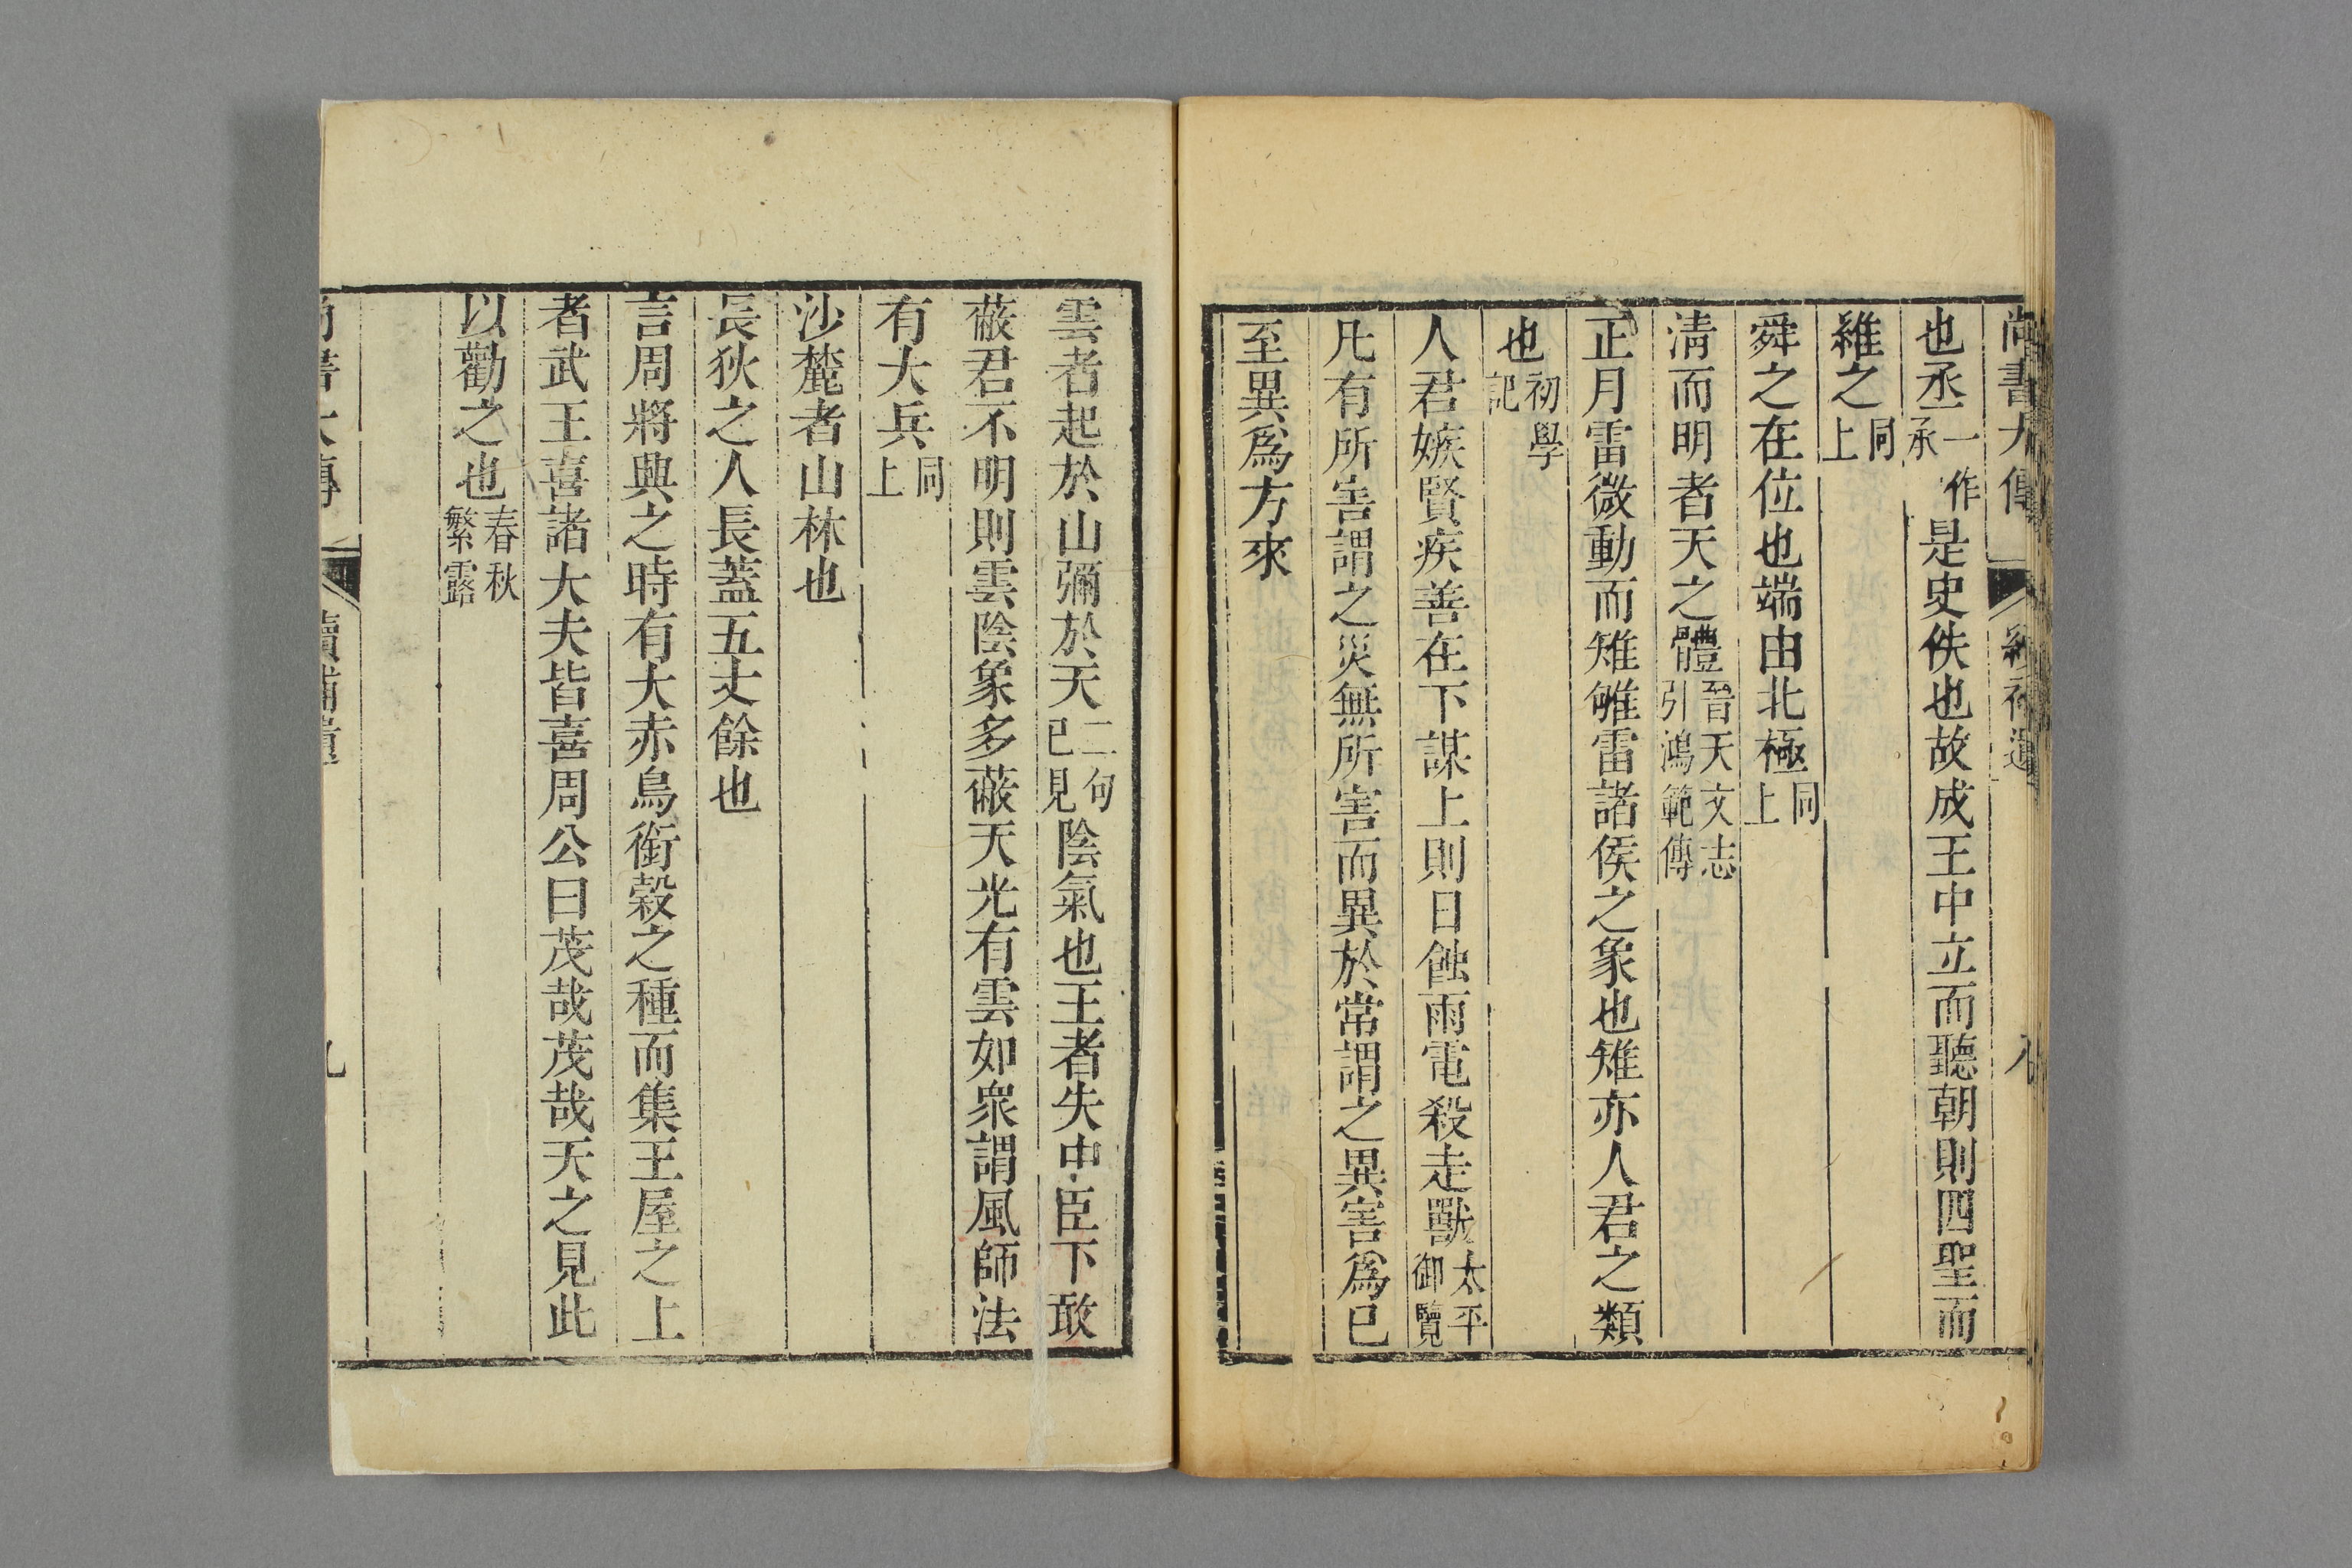 尚書大傳 續補遺 八
也丞一作承是史佚也故成王中立而聽朝則四聖而
維之同上
舜之在位也端由北極同上
清而明者天之體晉天文志引鴻範傳
正月雷微動而雉雊雷諸侯之象也雉亦人君之類
也初學記
人君嫉賢疾善在下謀上則日蝕雨雹殺走獸太平御覽
凡有所害謂之災無所害而異於常謂之異害爲已
至異爲方來
雲者起於山彌於天二句已見陰氣也王者失中臣下敢
蔽君不明則雲陰象多蔽天光有雲如衆謂風師法
有大兵同上
沙麓者山林也
長狄之人長蓋五丈餘也
言周將興之時有大赤烏銜穀之種而集王屋之上
者武王喜諸大夫皆喜周公曰茂哉茂哉天之見此
以勸之也春秋繁露
尚書大傳 續補遺 九